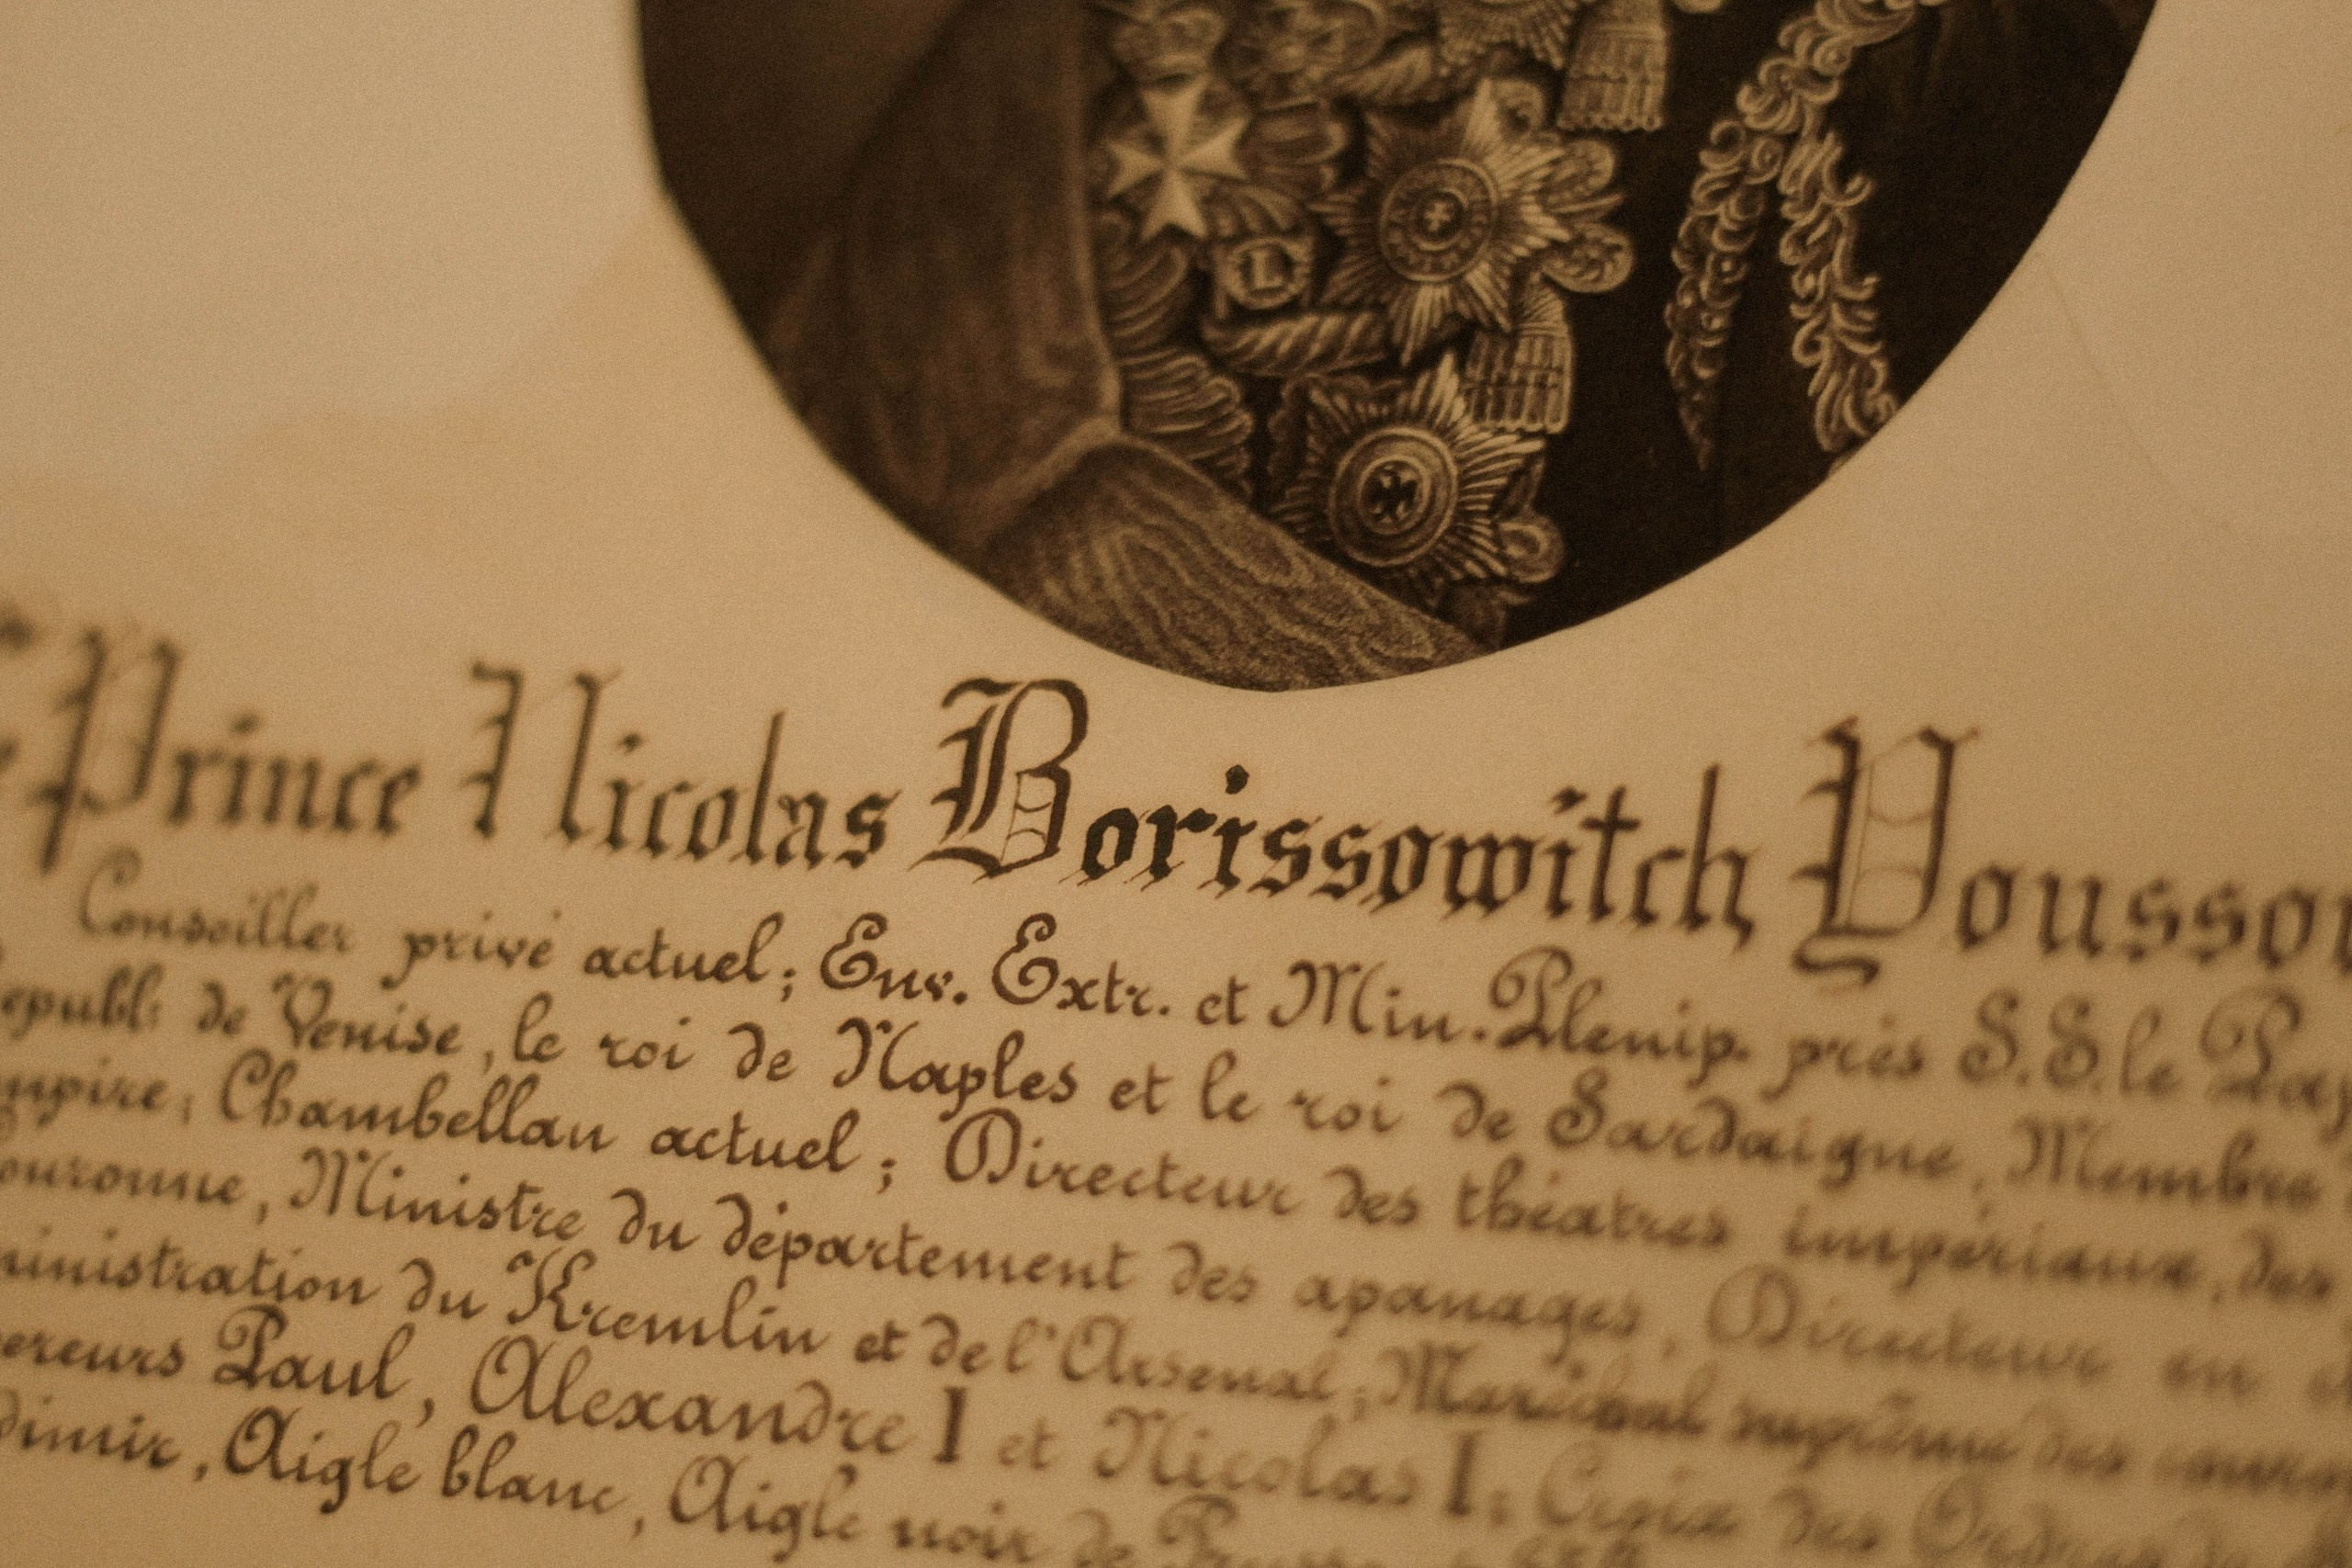 Prince Nicolas Borissowitch Yousso
Conseiller privé actuel; Env. Extr. et Min. Plenip. près S.S. le Pap
epubl: de Venise, le roi de Naples et le roi de Sardaigne, Membre
mpire; Chambellan actuel; Directeur des théatres impériaux, des
ouronne, Ministre du département des apanages, Directeur en
ministration du Kremlin et de l'Arsenal; Maréchal suprême des
pereurs Paul, Alexandre I et Nicolas I; Croix des Ordres de
dimir, Aigle blanc, Aigle noir de